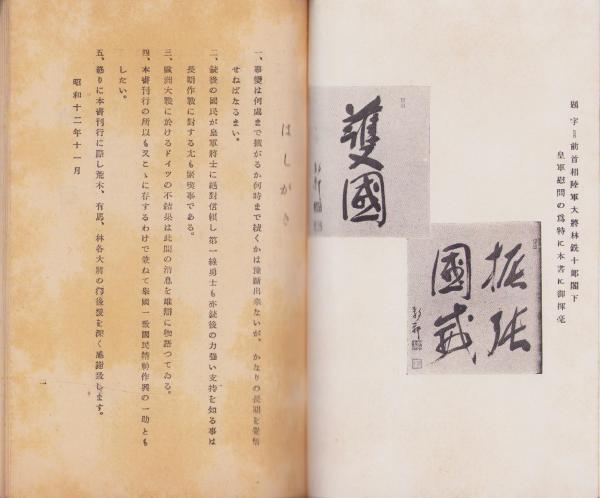 題字＝前首相陸軍大將林銑十郎閣下
皇軍慰問の爲特に本書に御揮毫
振張
國威
護國
はしがき
一、事變は何處まで擴がるか何時まで續くかは豫斷出來ないが、かなりの長期を覺悟
せねばなるまい。
二、銃後の國民が皇軍將士に絕對信賴し第一線勇士も亦銃後の力強い支持を知る事は
長期作戰に對する尤も緊要事である。
三、歐洲大戰に於けるドイツの不結果は此間の消息を雄辯に物語つてゐる。
四、本書刊行の所以も又こゝに存するわけで兼ねて擧國一致國民精神作興の一助とも
したい。
五、終りに本書刊行に際し荒木、有馬、林各大將の御後援を深く感謝致します。
昭和十二年十一月
一